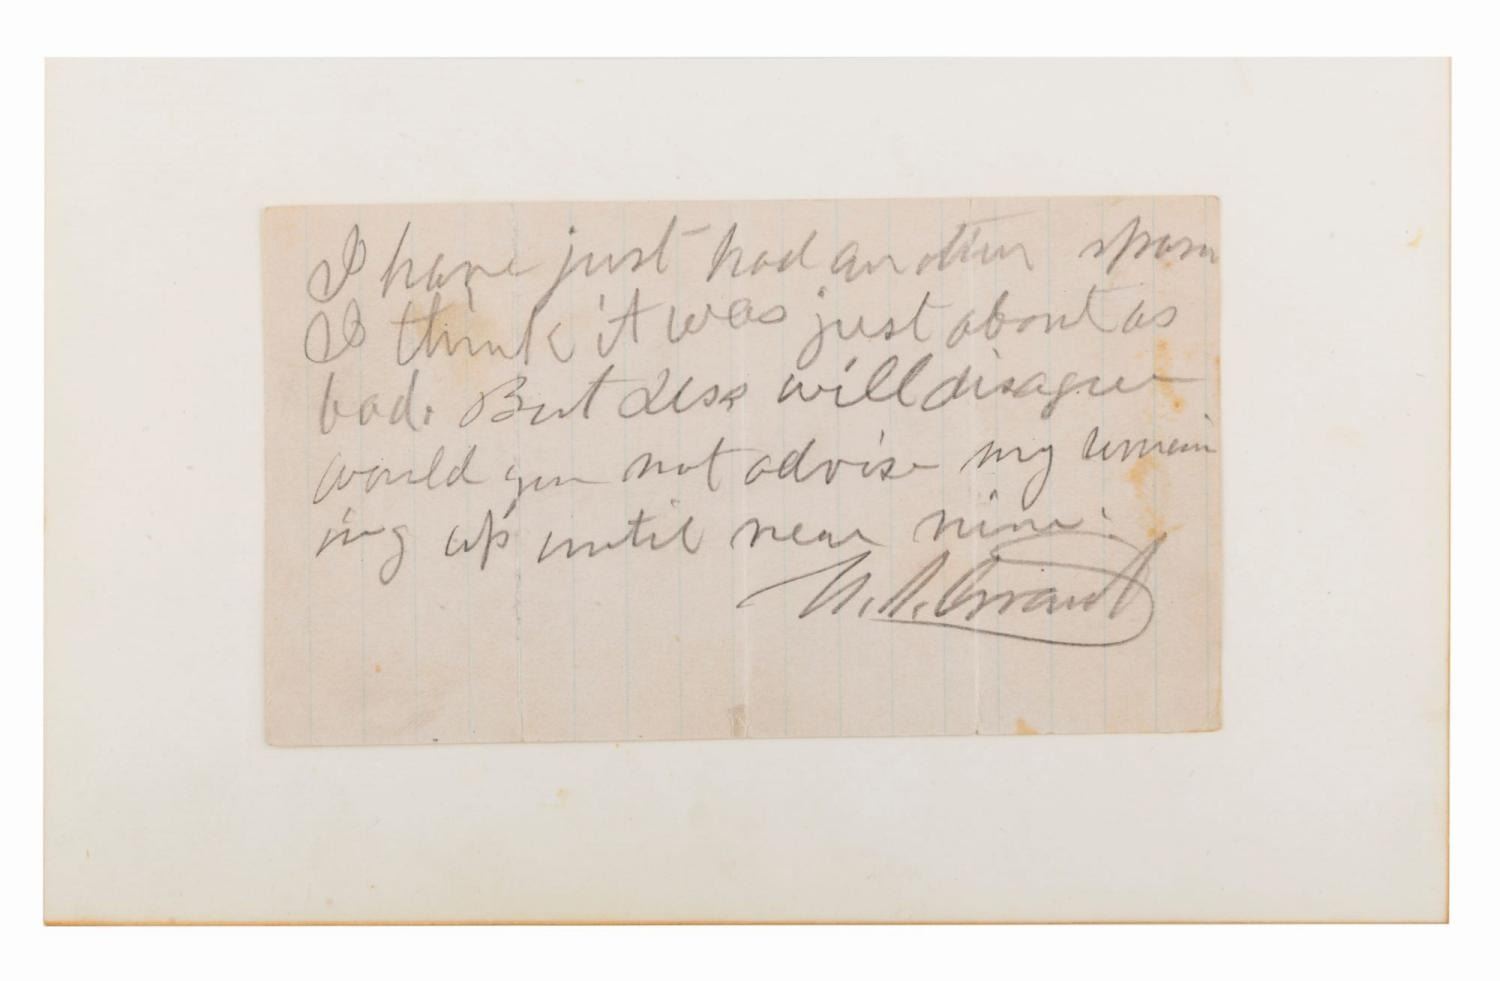 I have just had another spasm
I think it was just about as
bad. But Jess will disagree
would you not advise my remain
ing up until near nine.
U. S. Grant